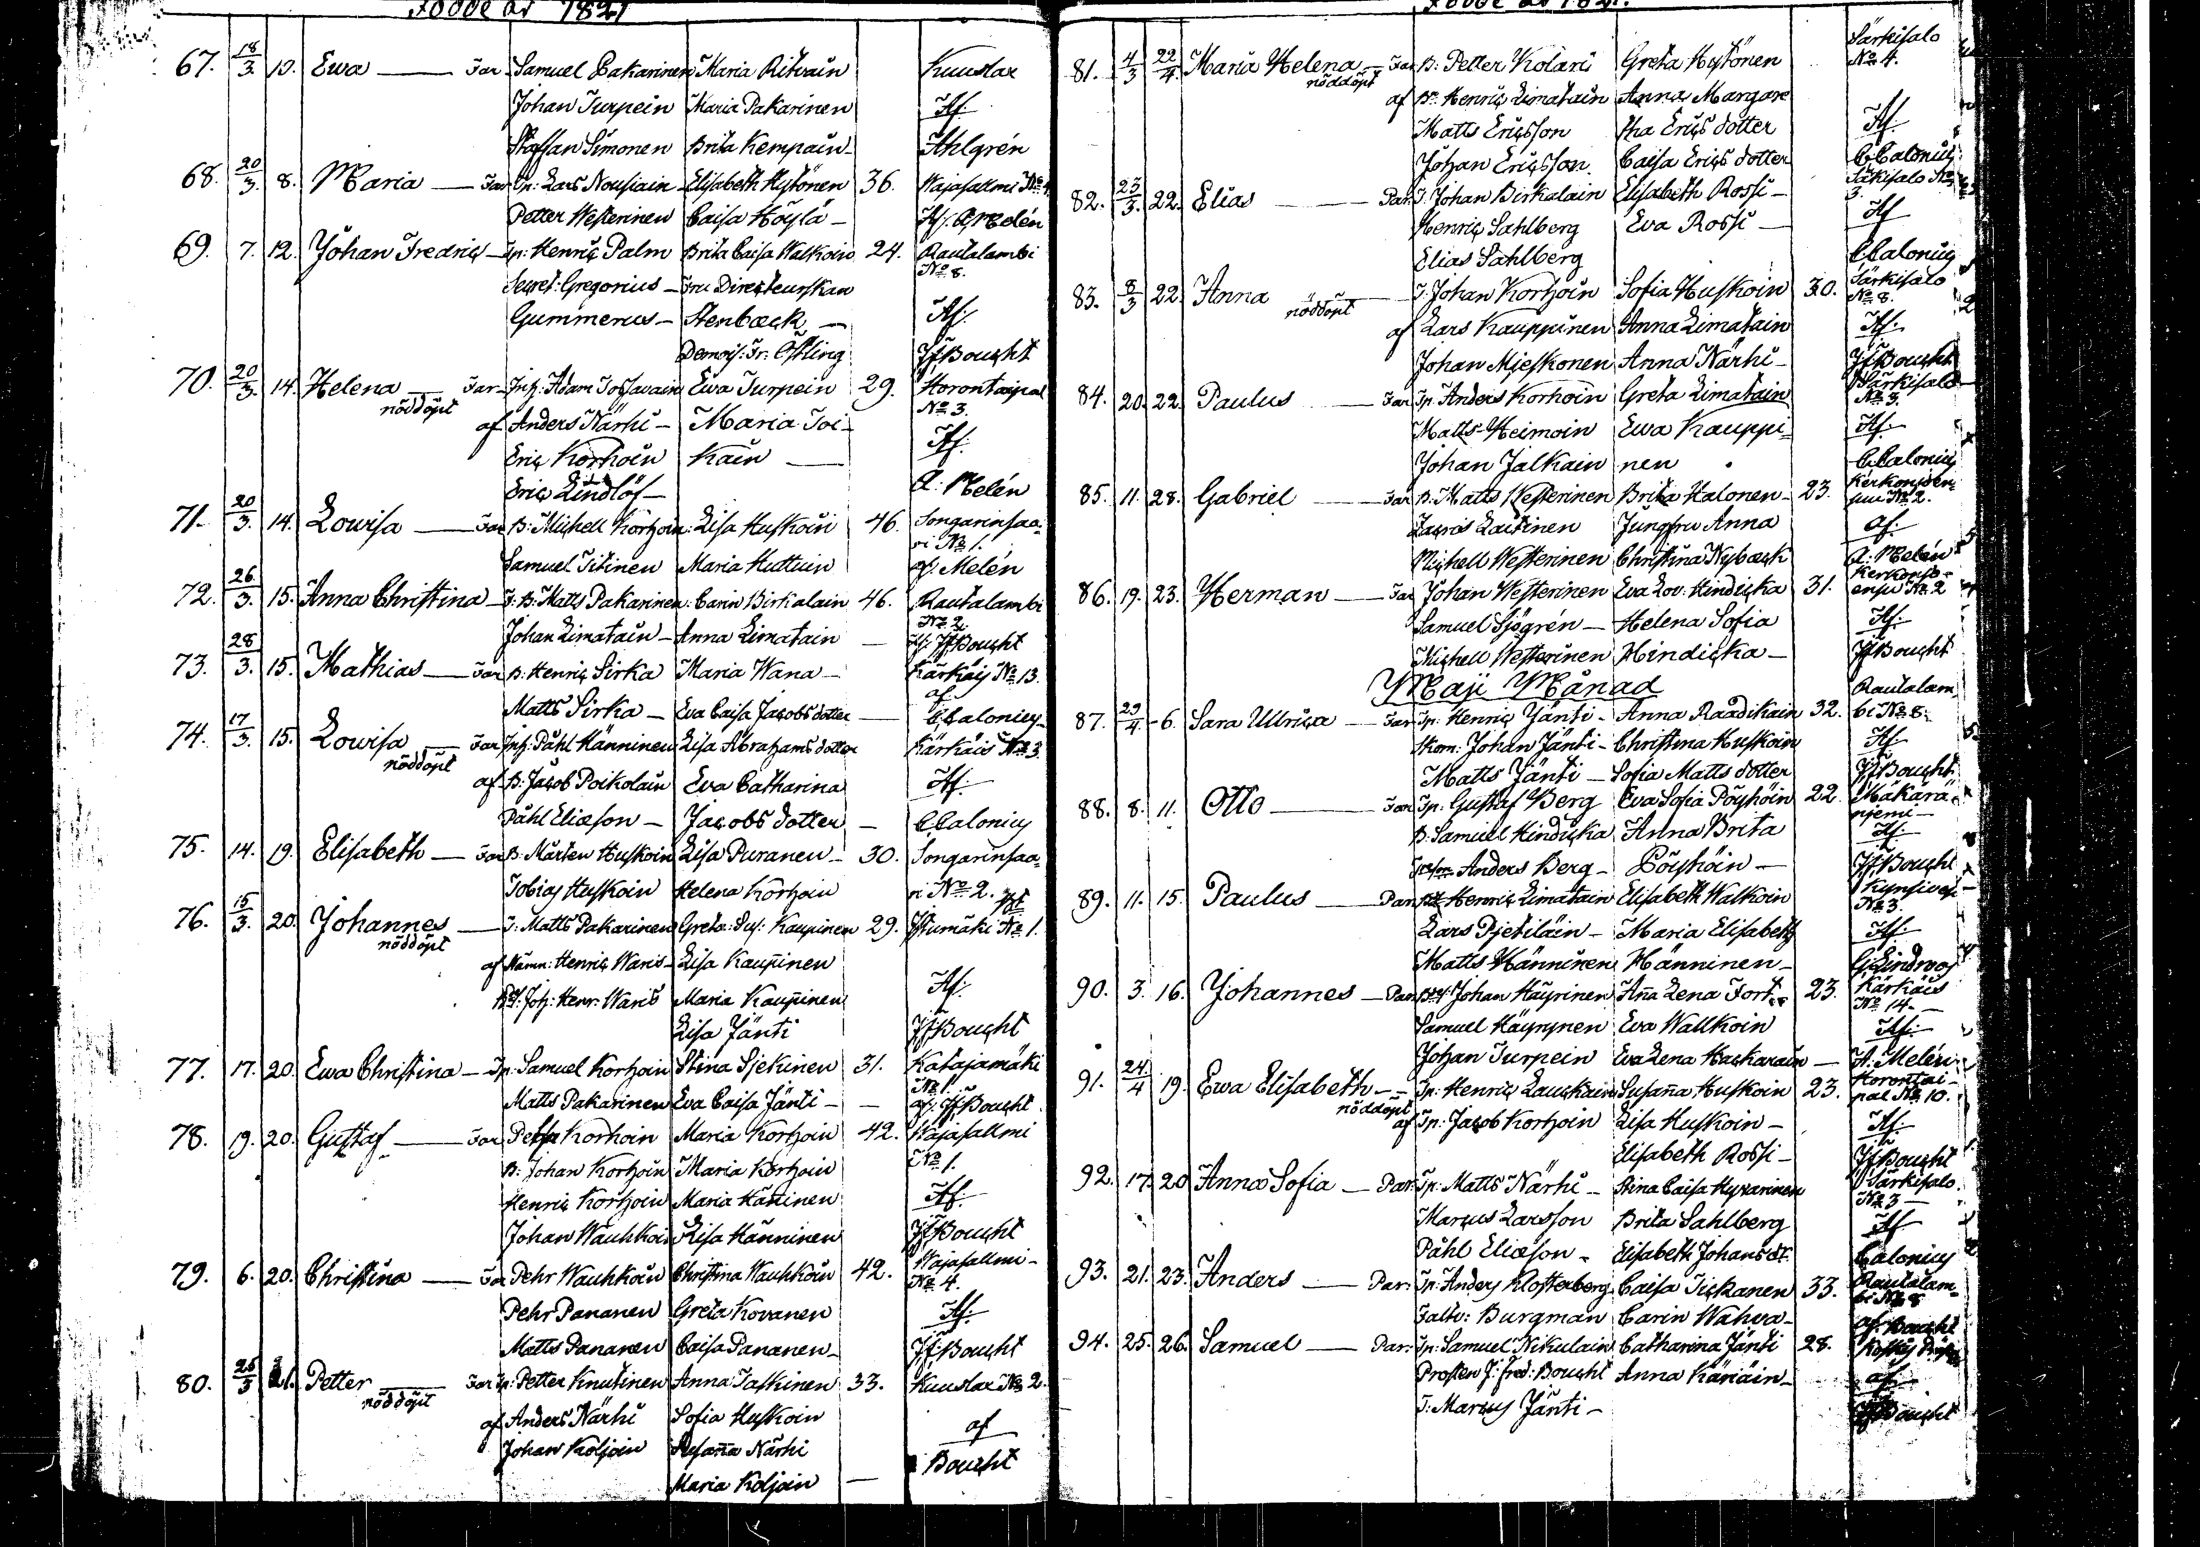 Födde år 1821
67. 18/3. 10. Ewa — Far Samuel Pakarinen Maria Ritvain Kuuslax
Johan Turpein Maria Pakarinen Af
Staffan Simonen Brita Kempain Ahlgrén
68. 20/3. 8. Maria — Far Tp: Lars Nousiain Elisabeth Hytönen 36. Wajasallmi No 4
Petter Westerinen Caisa Höylä — Af: A Melén
69. 7. 12. Johan Fredric — Tp: Henric Palm Brita Caisa Walkoin 24. Rautalambi
No 8.
Secret: Gregorius — Fru Directeurskan
Gummerus — Stenbäck — Af:
Demois: Fr: Östling JfBoucht
70. 20/3. 14. Helena — Far Inh: Adam Ewa Turpein 29. Horontaipal
nöddöpt No 3.
af Anders Närhi — Maria Toi- Af:
Eric Korhoin kain —
Eric Lindlöf — A: Melén
71. 20/3. 14. Lowisa — Far B: Michell Korhoin Lisa Huskoin 46. Songarinsaa-
ri No 1.
Samuel Titinen Maria Huttuin af: Melén
72. 26/3. 15. Anna Christina — F: B: Matts Pakarinen Carin Birkalain 46. Rautalambi
No 2.
Johan Limatain — Anna Limatain — Af: JfBoucht
73. 28/3. 15. Mathias — Far B: Henric Sirka Maria Wana — Kärkäis No 13.
af
Matts Sirka — Eva Caisa Jacobs dotter — CCalonius
74. 17/3. 15. Lowisa — Far Inh: Påhl Hänninen Lisa Abrahams dotter Kärkäis No 3
nöddöpt
af B: Jacob Poikolain Eva Catharina Af:
Påhl Eliæson — Jacobs dotter — CCalonius
75. 14. 19. Elisabeth — Far B: Mårten Huskoin Lisa Puranen — 30. Songarinsaa-
Tobias Huskoin Helena Korhoin ri No 2.
76. 15/3. 20. Johannes — F: Matts Pakarinen Greta: Kaupinen 29. Istumäki No 1.
nöddöpt
af Nämn: Henric Waris — Lisa Kaupinen
Joh: Henr: Waris Maria Kaupinen Af:
Lisa Jänti JfBoucht
77. 17. 20. Ewa Christina — Tp: Samuel Korhoin Stina Sjekinen 31. Katajamäki
No 1.
Matts Pakarinen Eva Caisa Jänti — af: JfBoucht
78. 19. 20. Gustaf — Far Pehr Korhoin Maria Korhoin 42. Wajasallmi
B: Johan Korhoin Maria Korhoin No 1.
Henric Korhoin Maria Af.
Johan Wauhkoin Lisa Hänninen JfBoucht
79. 6. 20. Christina — Far Pehr Wauhkoin Christina Wauhkoin 42. Wajasallmi
No 4.
Pehr Pananen Greta Kovanen Af:
Matts Pananen Caisa Pananen — JfBoucht
80. 25/3 21. Petter — Far Tp: Petter Knutinen Anna Taskinen 33. Kuuslax No 2.
nöddöpt
af Anders Närhi Sofia Huskoin af
Johan Koljoin Susaña Närhi
Maria Koljoin — Boucht
Födde år 1821.
Särkisalo
81. 4/3 22/4 Maria Helena — Far B: Petter Kolari Greta Hytönen No 4.
nöddöpt
af Bn Henric Limatain Anna Margare
Matts Ericsson tha Erics dotter Af.
Johan Ericsson. Caisa Erics dotter CCalonius
82. 23/3. 22. Elias — Par: T. Johan Birkalain Elisabeth Rossi — Säkisalo No
3.
Henric Sahlberg Eva Rossi — Af
Elias Sahlberg CCalonius
83. 8/3 22. Anna — T. Johan Korhoin Sofia Huskoin 30. Särkisalo
nöddöpt No 8.
af Lars Kauppinen Anna Limatain Af:
Johan Mjeskonen Anna Närhi — JfBoucht
84. 20. 22. Paulus — Far Tp. Anders Korhoin Greta Limatain Särkisalo
No 3.
Matts Heimoin Ewa Kauppi= Af.
Johan Jalkain nen CCalonius
85. 11. 28. Gabriel — Far B: Matts Westerinen Brita Halonen — 23. Kerkonjen-
suu No 2.
Lars Laitinen Jungfru Anna af:
Michell Westerinen Christina Nybæck A: Melén
86. 19. 23. Herman — Far Johan Westerinen Eva Lov: Hindicka 31. Kerkonjo-
ensu No 2
Samuel Sjögrén — Helena Sofia Af:
Michell Westerinen Hindicka — JfBoucht
Maji Månad
87. 29/4 6. Sara Ullrica — Far Tp: Henric Jänti — Anna Raadikain 32. Rautalam
bi No 8.
Skom: Johan Jänti — Christina Huskoin Af:
Matts Jänti — Sofia Matts dotter JfBoucht
88. 8. 11. Otto — Far Tp: Gustaf Berg Eva Sofia Pöyhöin 22. Mäkärä-
njemi —
B: Samuel Hindicka Anna Brita Af
Anders Berg — Pöyhöin — JfBoucht
89. 11. 15. Paulus — Par Henric Limatain Elisabeth Walkoin Kynsives
No 3.
Lars Pjetiläin — Maria Elisabeth Af:
Matts Hänninen Hänninen — GLindroos
90. 3. 16. Johannes — Par Johan Häyrinen Aña Lena Fort 23. Kärkäis
No 14.
Samuel Häyrynen Eva Wallkoin Af:
Johan Turpein Eva Lena Kaskarain — A: Melén
91. 24/4 19. Ewa Elisabeth — Tp: Henric Lauckain Susaña Huskoin 23. Horontai-
pal No 10.
nöddöpt
af Tp: Jacob Korhoin Lisa Huskoin — Af:
Elisabeth Rossi — JfBoucht
92. 17. 20 Anna Sofia — Par: Tp: Matts Närhi — Stina Caisa Hyvarinen Särkisalo
No 3 —
Marcus Larsson Brita Sahlberg Af
Påhl Eliæson — Elisabeth Johans dr. Calonius
93. 21. 23. Anders — Par: Tp: Anders Klosterberg Caisa Tickanen 33. Rautalam-
bi No 8
Faltv: Burgman Carin Wahva — af: Boucht
94. 25. 26. Samuel — Par: Tp: Samuel Nikulain Catharina Jänti 28.
Prosten J: fred: Boucht Anna Käriäin — af
T: Marcus Jänti — JfBoucht